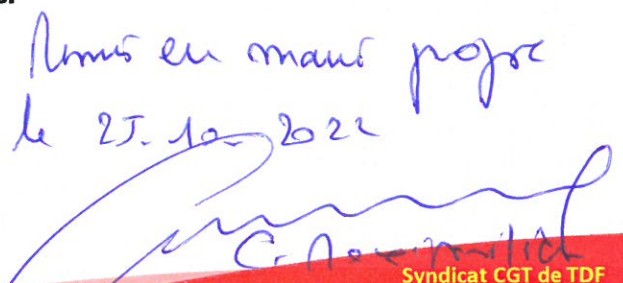 Remis en main propre
le 25.10.2022
C.
Syndicat CGT de TDF